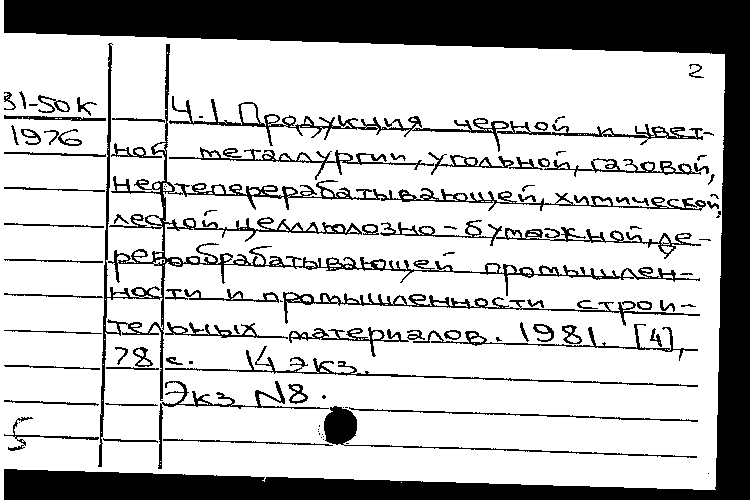 2
31-50К
1976
Ч.1. Продукция черной и цвет-
ной металлургии, угольной, газовой,
нефтеперерабатывающей, химической,
лесной, целлюлозно-бумажной, де-
ревообрабатывающей промышлен-
ности и промышленности строи-
тельных материалов. 1981. [4],
78 с. 14 экз.
Экз. N8.
5